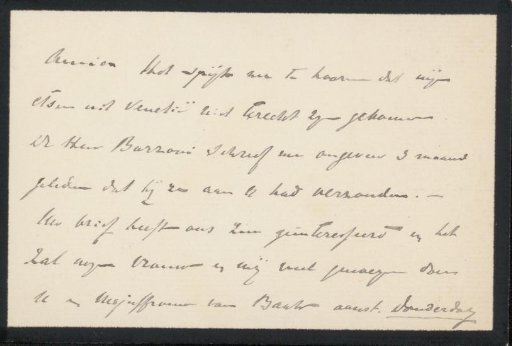 Amice Het spijt me te hooren dat mijn
etsen uit Venetië niet terecht zijn gekomen
De Heer Barzoni schreef me ongeveer 3 maand
geleden dat hij ze aan U had verzonden. –
Uw brief heeft ons zeer geinteresseerd en het
zal mijn vrouw en mij veel genoegen doen
U en Mejuffrouw van aanst. Donderdag